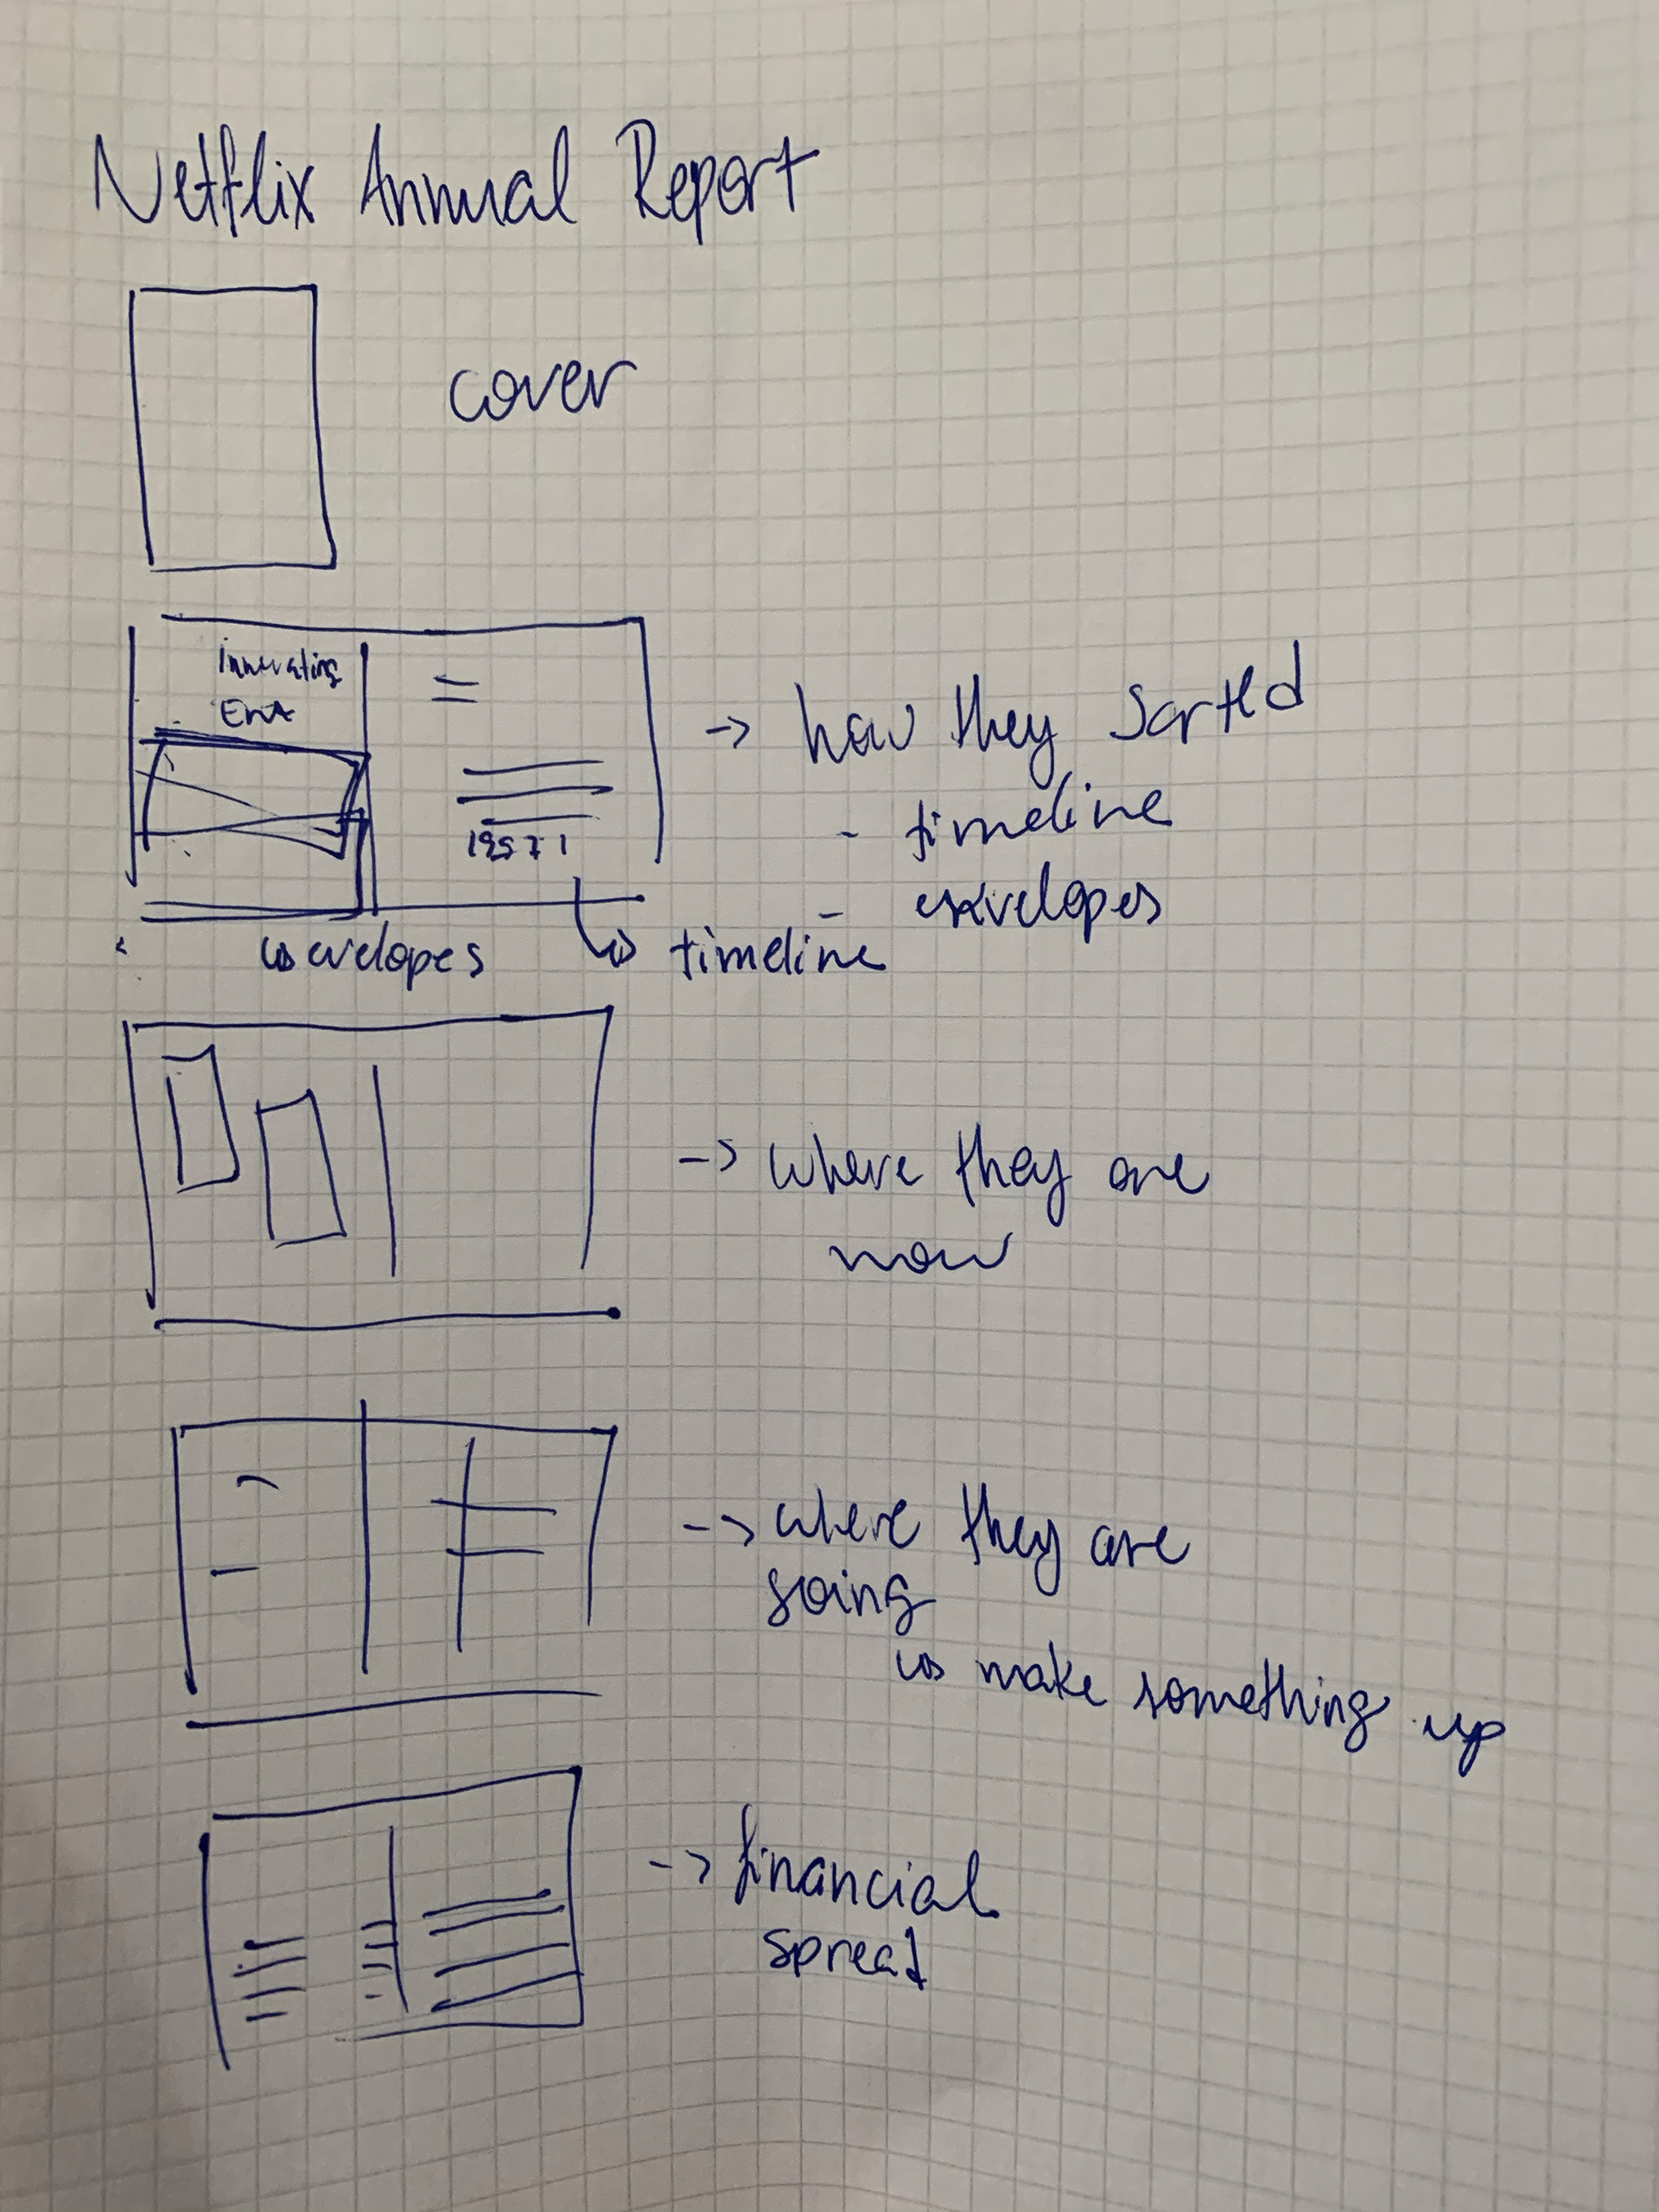 Netflix Annual Report
cover
Innovating
Ent
-> how they Sarted
- timeline
- envelopes
↳ evelopes
↳ timeline
-> where they are
now
-> where they are
going
↳ make something up
-> financial
spread